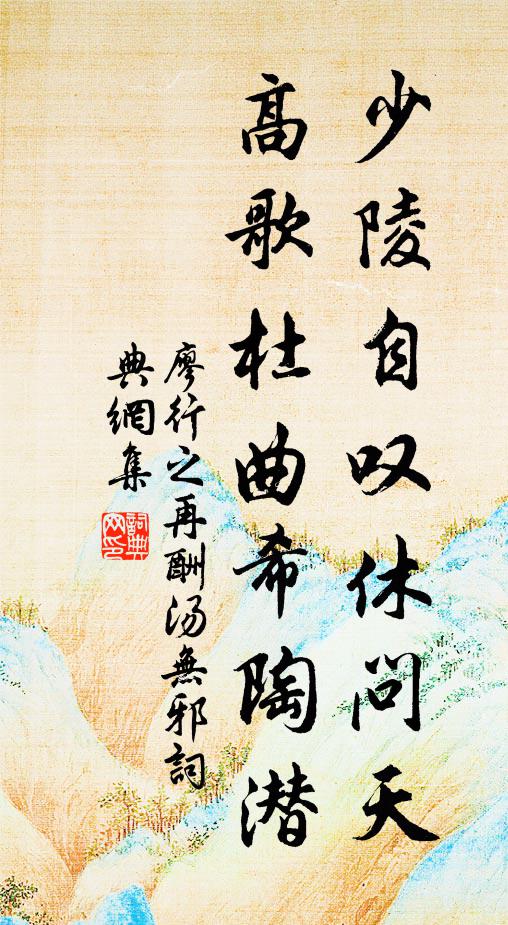 少陵自叹休问天
高歌杜曲希陶潜
廖行之再酬汤無邪詞
典網集
詞典
网印